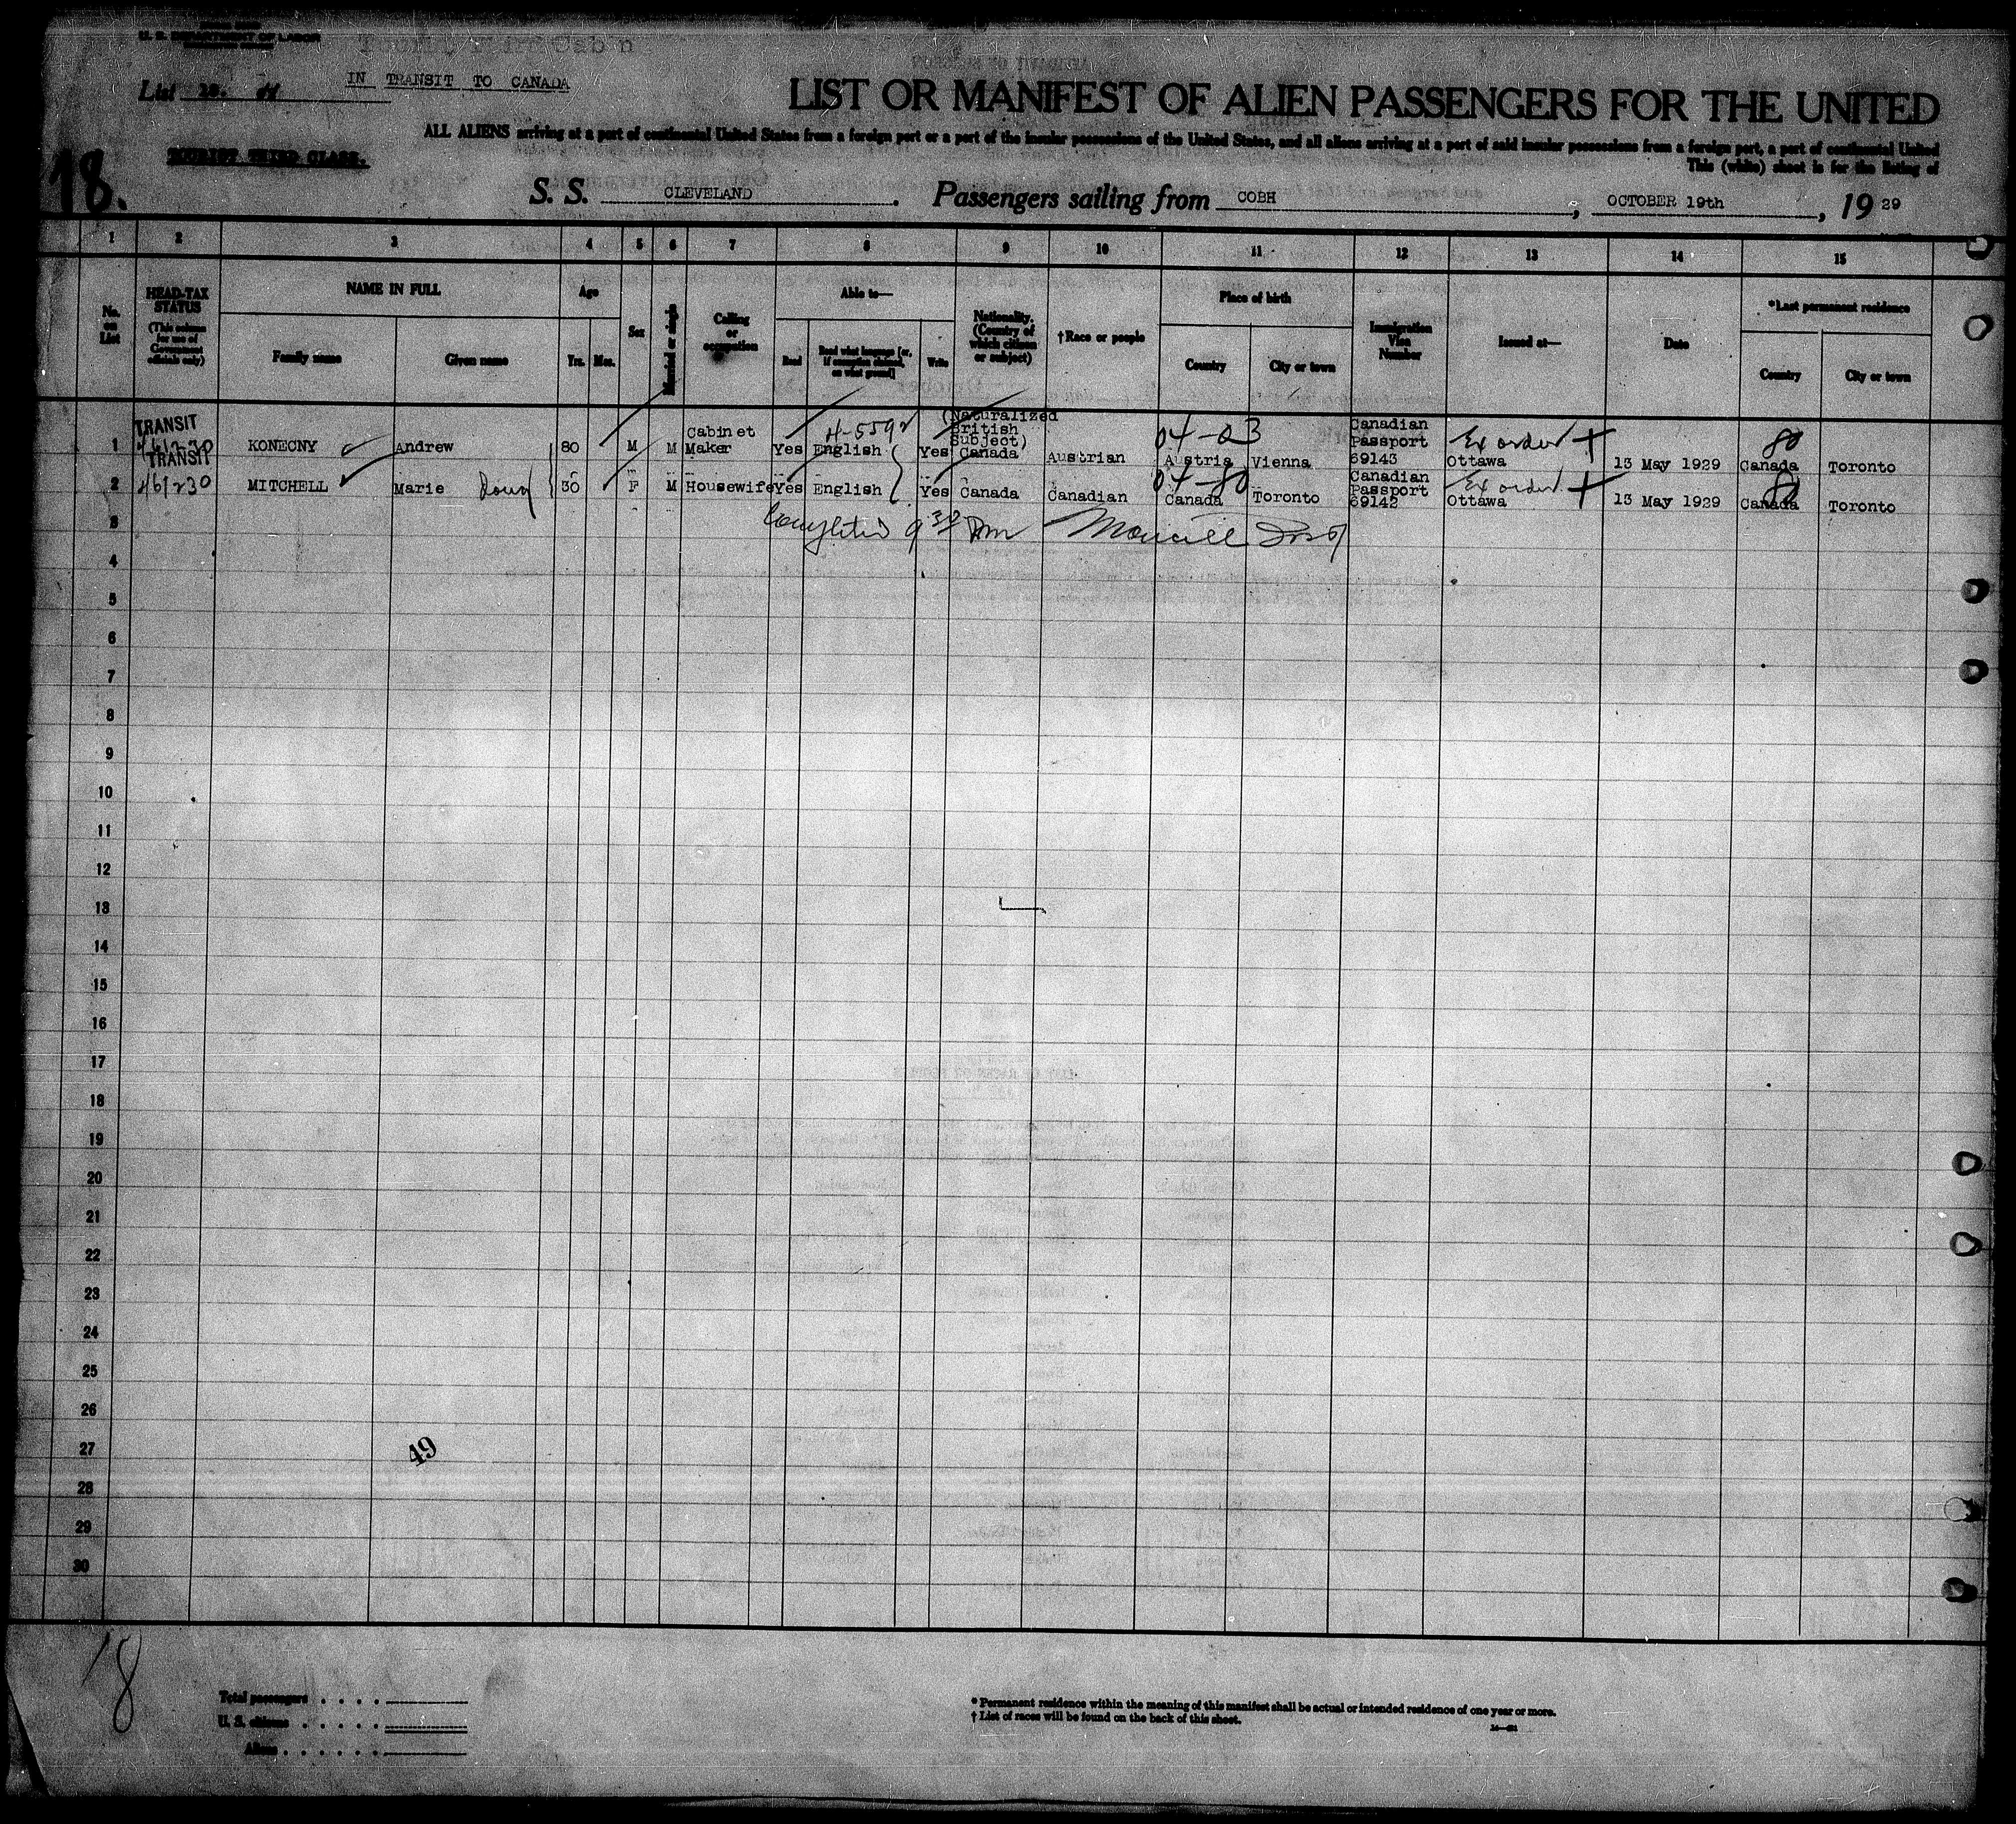 U. S. DEPARTMENT OF LABOR
Tourist Third Cabin
List 18.
IN TRANSIT TO CANADA
LIST OR MANIFEST OF ALIEN PASSENGERS FOR THE UNITED
ALL ALIENS arriving at a port of continental United States from a foreign port or a port of the insular possessions of the United States, and all aliens arriving at a port of said insular possessions from a foreign port, a port of continental United
This (white) sheet is for the listing of
TOURIST THIRD CLASS.
18.
S. S. CLEVELAND. Passengers sailing from COBH, OCTOBER 19th, 19 29
1 2 3 4 5 6 7 8 9 10 11 12 13 14 15
No. on List
HEAD-TAX STATUS (This column for use of Government officials only)
NAME IN FULL
Family name
Given name
Age
Yrs. Mos.
Sex
Married or single
Calling or occupation
Able to—
Read
Read what language [or, if exemption claimed, on what ground]
Write
Nationality. (Country of which citizen or subject)
†Race or people
Place of birth
Country
City or town
Immigration Visa Number
Issued at—
Date
*Last permanent residence
Country
City or town
1 TRANSIT 461230 KONECNY Andrew 80 M M Cabinet Maker Yes English 4-5592 Yes (Naturalized British Subject) Canada Austrian 04-03 Austria Vienna Canadian Passport 69143 Ex order + Ottawa 13 May 1929 80 Canada Toronto
2 TRANSIT 461230 MITCHELL Marie 30 F M Housewife Yes English Yes Canada Canadian 04-80 Canada Toronto Canadian Passport 69142 Ex order + Ottawa 13 May 1929 80 Canada Toronto
3
4
5
6
7
8
9
10
11
12
13
14
15
16
17
18
19
20
21
22
23
24
25
26
27
28
29
30
49
18
Total passengers
U. S. citizens
Aliens
* Permanent residence within the meaning of this manifest shall be actual or intended residence of one year or more.
† List of races will be found on the back of this sheet.